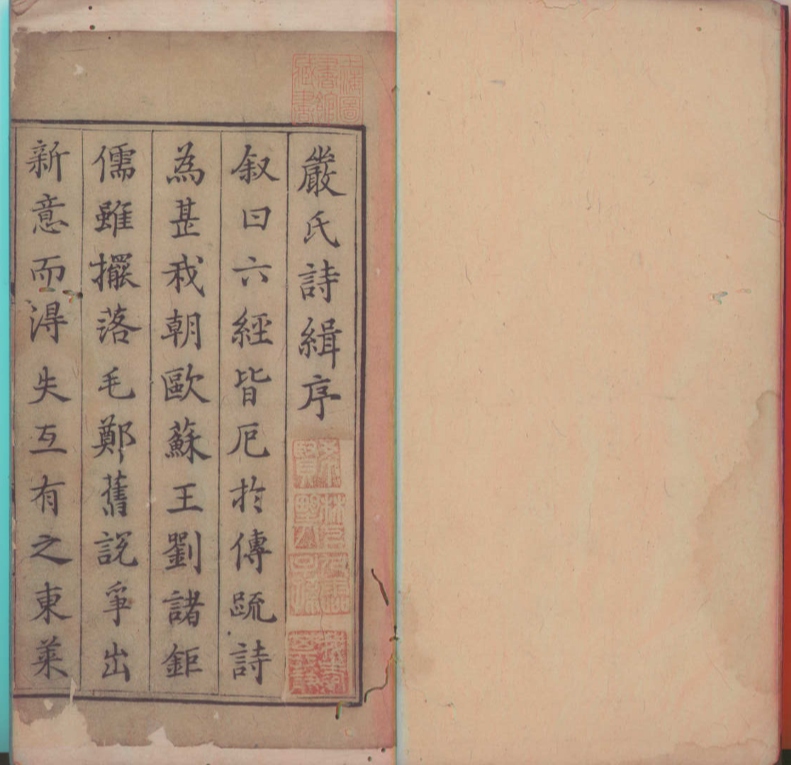 嚴氏詩緝序
叙曰六經皆厄扵傳䟽詩
為甚我朝歐蘇王劉諸鉅
儒雖擺落毛鄭舊說爭出
新意而淂失互有之東萊